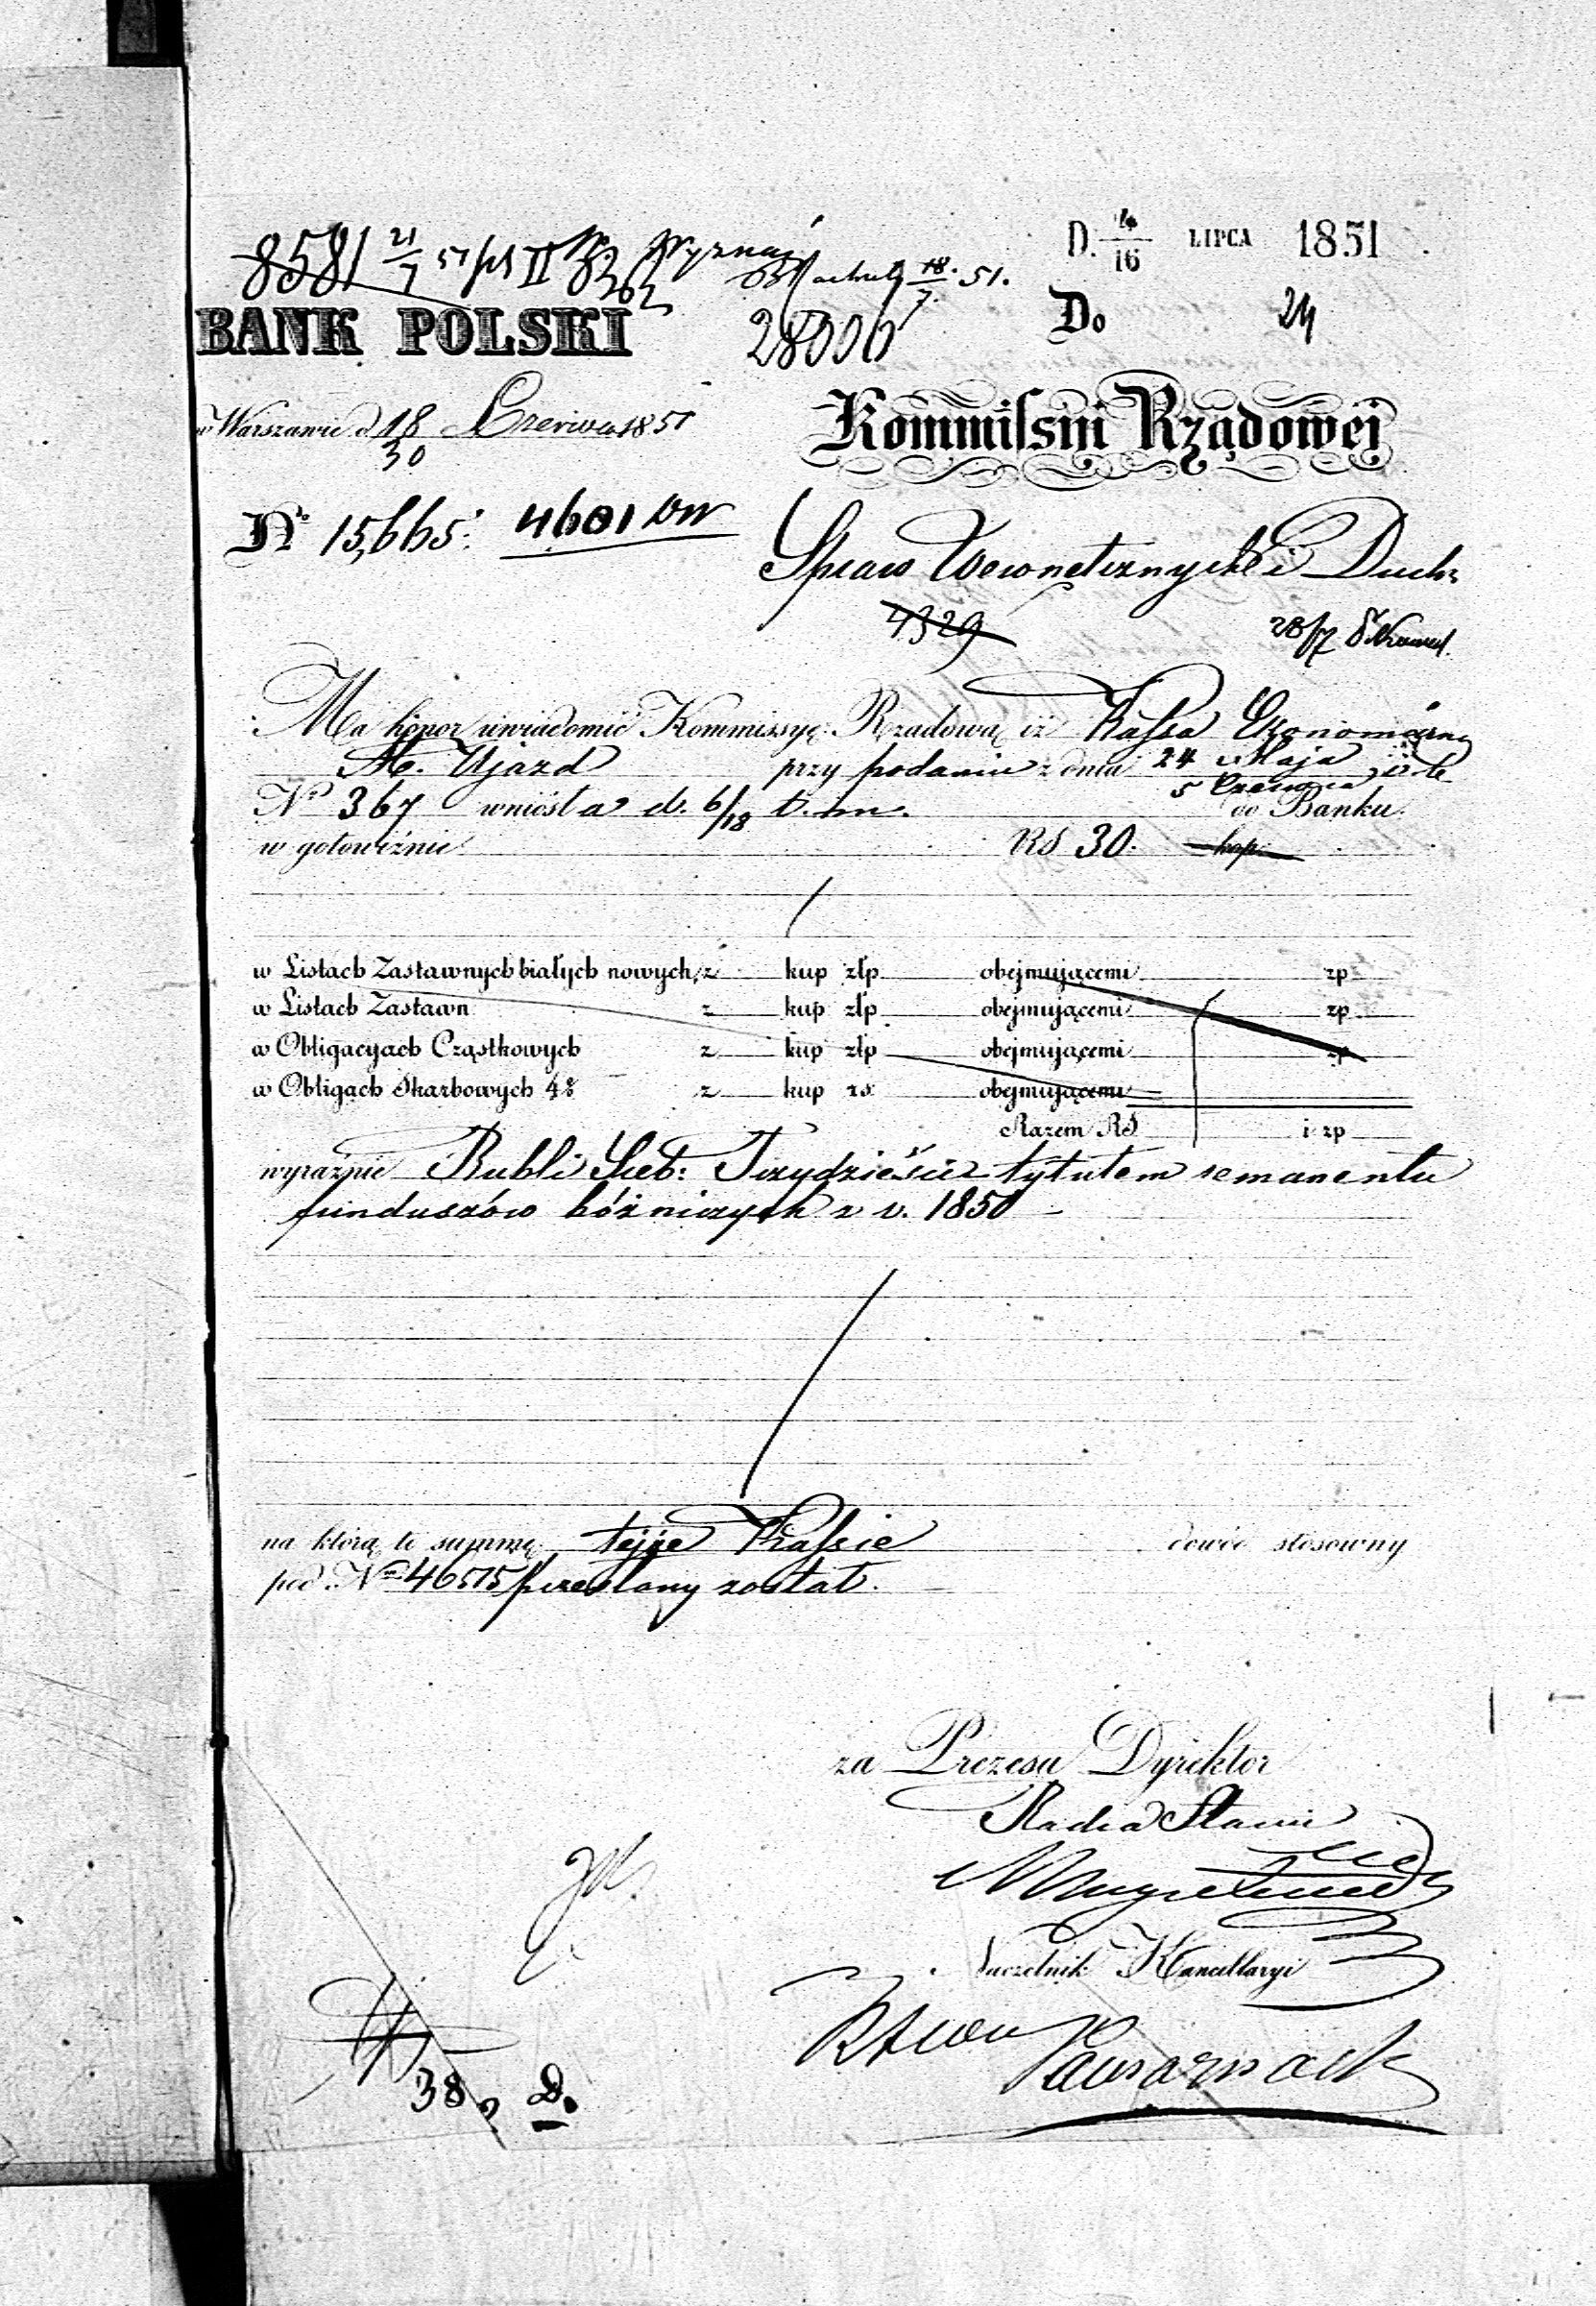 8581 21/7 51 II
18/7 51.
D. 4/16 LIPCA 1851
BANK POLSKI
28006
Do 24
w Warszawie d 18/30 Czerwca 1851
Kommissyi Rządowej
No 15,665. 4601
Spraw Wewnetrznych i Duch:
4329
28/7
Ma honor uwiadomić Kommissyę Rządową iż Kassa Ekonomiczna
M. Ujazd przy podaniu z dnia 24 Maja / 5 Czerwca
No 367 wniosła d. 6/18 t. m. do Banku.
w gotowiźnie RS 30. kop.
w Listach Zastawnych białych nowych, z kup złp obejmującemi zp
w Listach Zastawn z kup złp obejmującemi zp
w Obligacyach Cząstkowych z kup złp obejmującemi zp
w Obligach Skarbowych 4% z kup rs obejmującemi
Razem RS i zp
wyraźnie Rubli Sreb: Trzydzieście tytułem remanentu
funduszów bóżniczych z r. 1850
na którą to summę tejże Kassie dowód stosowny
pod No 46515 przesłany został.
za Prezesa Dyrektor
Radca Stanu
Naczelnik Kancellaryi
38
D.